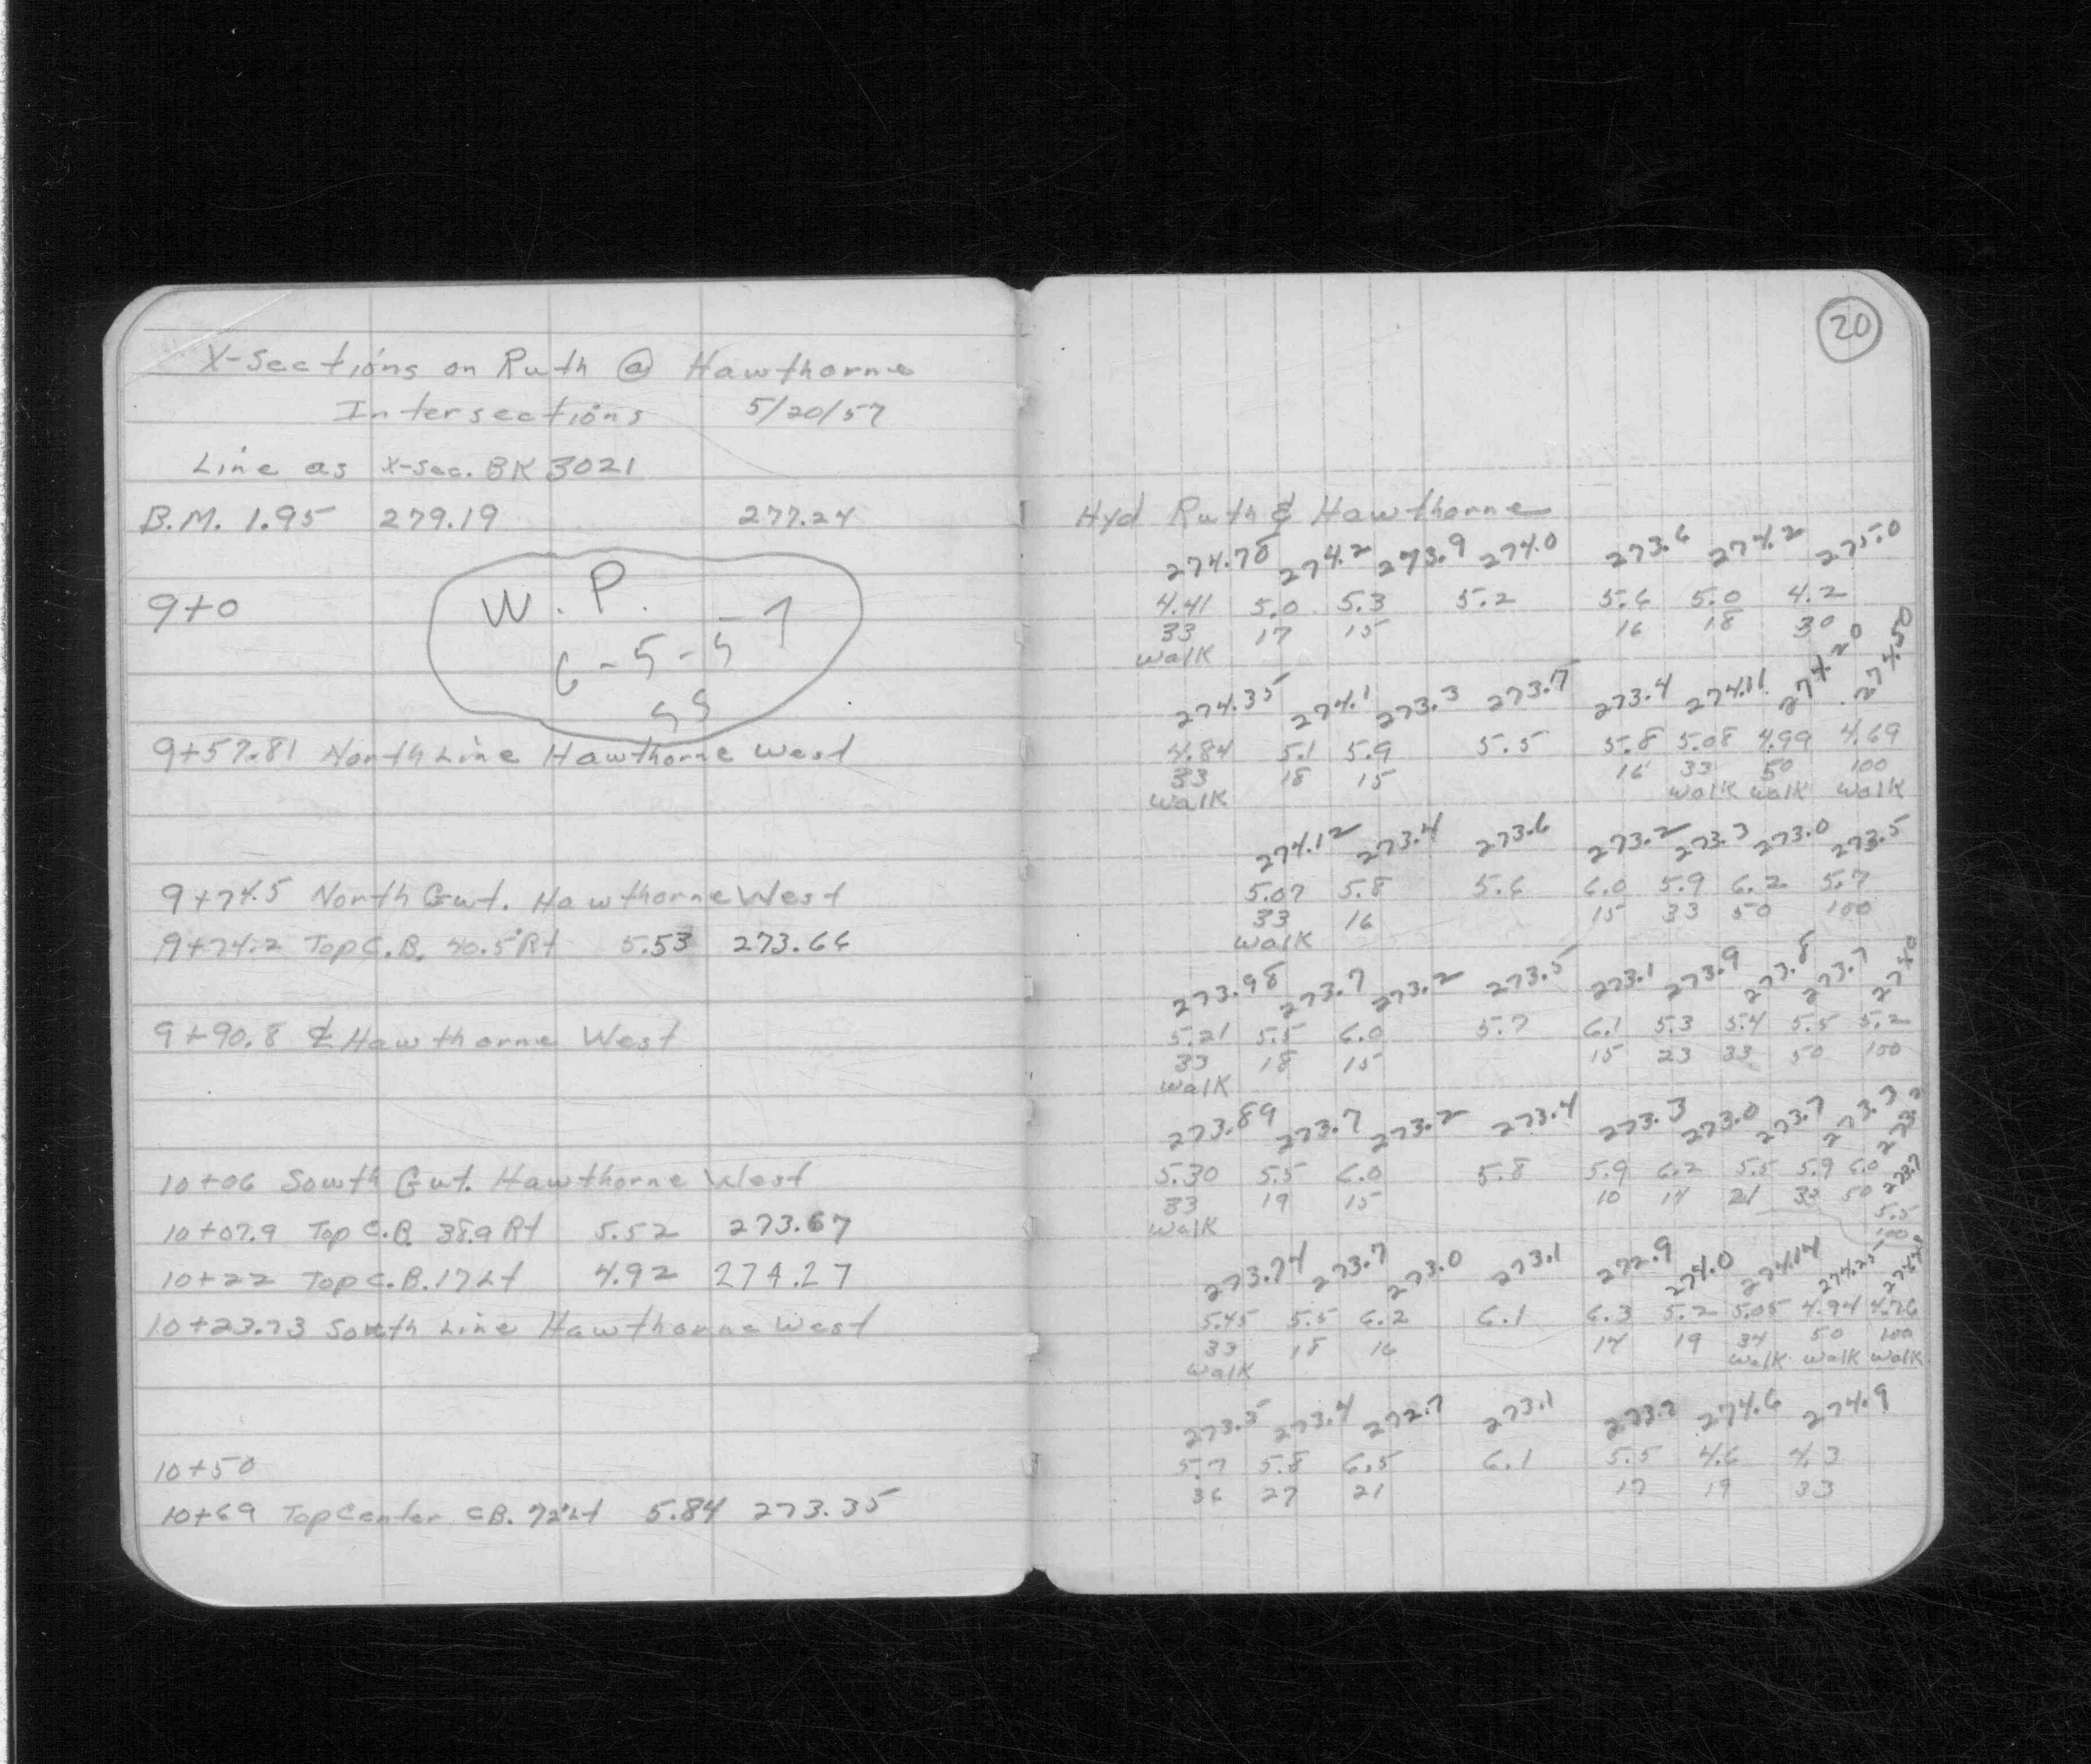 X-Sections on Ruth @ Hawthorne
Intersections 5/20/57
Line as X-Sec. BK 3021
B.M. 1.95 279.19 277.24
W. P.
9+0
6-5-57
9+57.81 North Line Hawthorne West
9+74.5 North Gut. Hawthorne West
9+74.2 Top C.B. 40.5' Rt 5.53 273.66
9+90.8 ℄ Hawthorne West
10+06 South Gut. Hawthorne West
10+07.9 Top C.B. 38.9 Rt 5.52 273.67
10+22 Top C.B. 17 Lt 4.92 274.27
10+23.73 South Line Hawthorne West
10+50
10+69 Top Center CB. 72' Lt 5.84 273.35
20
Hyd Ruth & Hawthorne
274.78 274.2 273.9 274.0 273.6 274.2 275.0
4.41 5.0 5.3 5.2 5.6 5.0 4.2
33 17 15 16 18 30
Walk
274.35 274.1 273.3 273.7 273.4 274.11 274.20 274.50
4.84 5.1 5.9 5.5 5.8 5.08 4.99 4.69
33 18 15 16 33 50 100
Walk Walk Walk Walk
274.12 273.4 273.6 273.2 273.3 273.0 273.5
5.07 5.8 5.6 6.0 5.9 6.2 5.7
33 16 15 33 50 100
Walk
273.98 273.7 273.2 273.5 273.1 273.9 273.8 273.7 274.0
5.21 5.5 6.0 5.7 6.1 5.3 5.4 5.5 5.2
33 18 15 15 23 33 50 100
Walk
273.89 273.7 273.2 273.4 273.3 273.0 273.7 273.3
5.30 5.5 6.0 5.8 5.9 6.2 5.5 5.9 6.0 273.7
33 19 15 10 14 21 33 50 5.5
Walk 100
273.74 273.7 273.0 273.1 272.9 274.0 274.14 274.25
5.45 5.5 6.2 6.1 6.3 5.2 5.05 4.94 4.76
33 18 16 14 19 34 50 100
Walk Walk Walk Walk
273.5 273.4 272.7 273.1 273.7 274.6 274.9
5.7 5.8 6.5 6.1 5.5 4.6 4.3
36 27 21 17 19 33